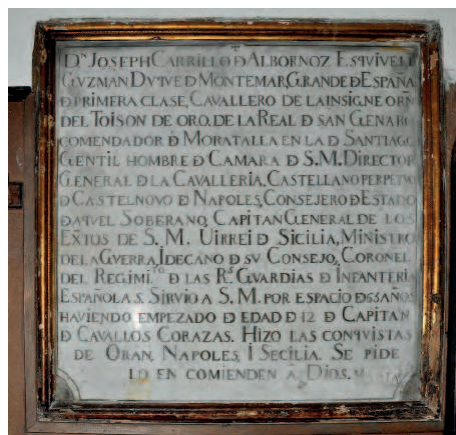 Dⁿ JOSEPH CARRILLO Đ ALBORNOZ ESQUIVEL I
GVZMAN DVQVE Đ MONTEMAR, GRANDE Đ ESPAÑA
Đ PRIMERA CLASE, CAVALLERO DE LA INSIGNE ORⁿ
DEL TOISON DE ORO, DE LA REAL Đ SAN GENARO
COMENDADOR Đ MORATALLA EN LA Đ SANTIAGO
GENTIL HOMBRE Đ CAMARA Đ S.M. DIRECTOR
GENERAL Đ LA CAVALLERIA, CASTELLANO PERPETVO
Đ CASTELNOVO Đ NAPOLES, CONSEJERO Đ ESTADO
Đ AQVEL SOBERANO, CAPITAN GENERAL DE LOS
EXTOS DE S. M. UIRREI Đ SICILIA, MINISTRO
DE LA GVERRA, I DECANO Đ SV CONSEJO, CORONEL
DEL REGIMI.ᵀᴼ Đ LAS Rˢ GVARDIAS Đ INFANTERIA
ESPAÑOLAS. SIRVIO A S. M. POR ESPACIO Đ 63 AÑOS
HAVIENDO EMPEZADO Đ EDAD Đ 12 Đ CAPITAN
Đ CAVALLOS CORAZAS. HIZO LAS CONQVISTAS
DE ORAN, NAPOLES, I SECILIA. SE PIDE
LO EN COMIENDEN Â DIOS.